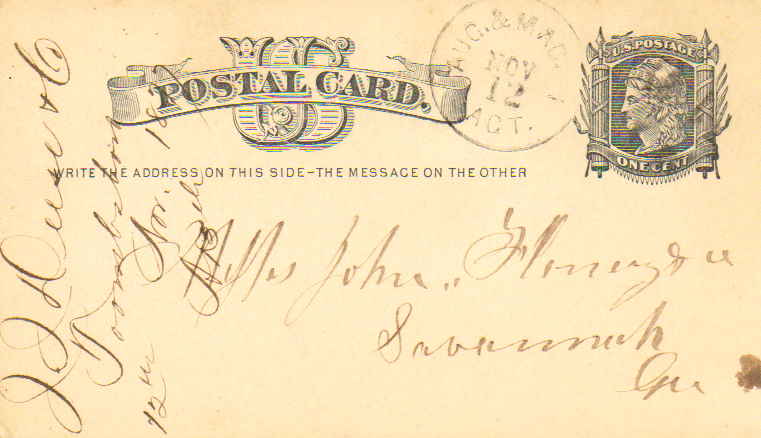 US
POSTAL CARD.
AUG. & MAC.
NOV
12
AGT.
U.S. POSTAGE
ONE CENT
WRITE THE ADDRESS ON THIS SIDE–THE MESSAGE ON THE OTHER
Messrs John Flannery & co
Savannah
Ga
12th Nov. 18